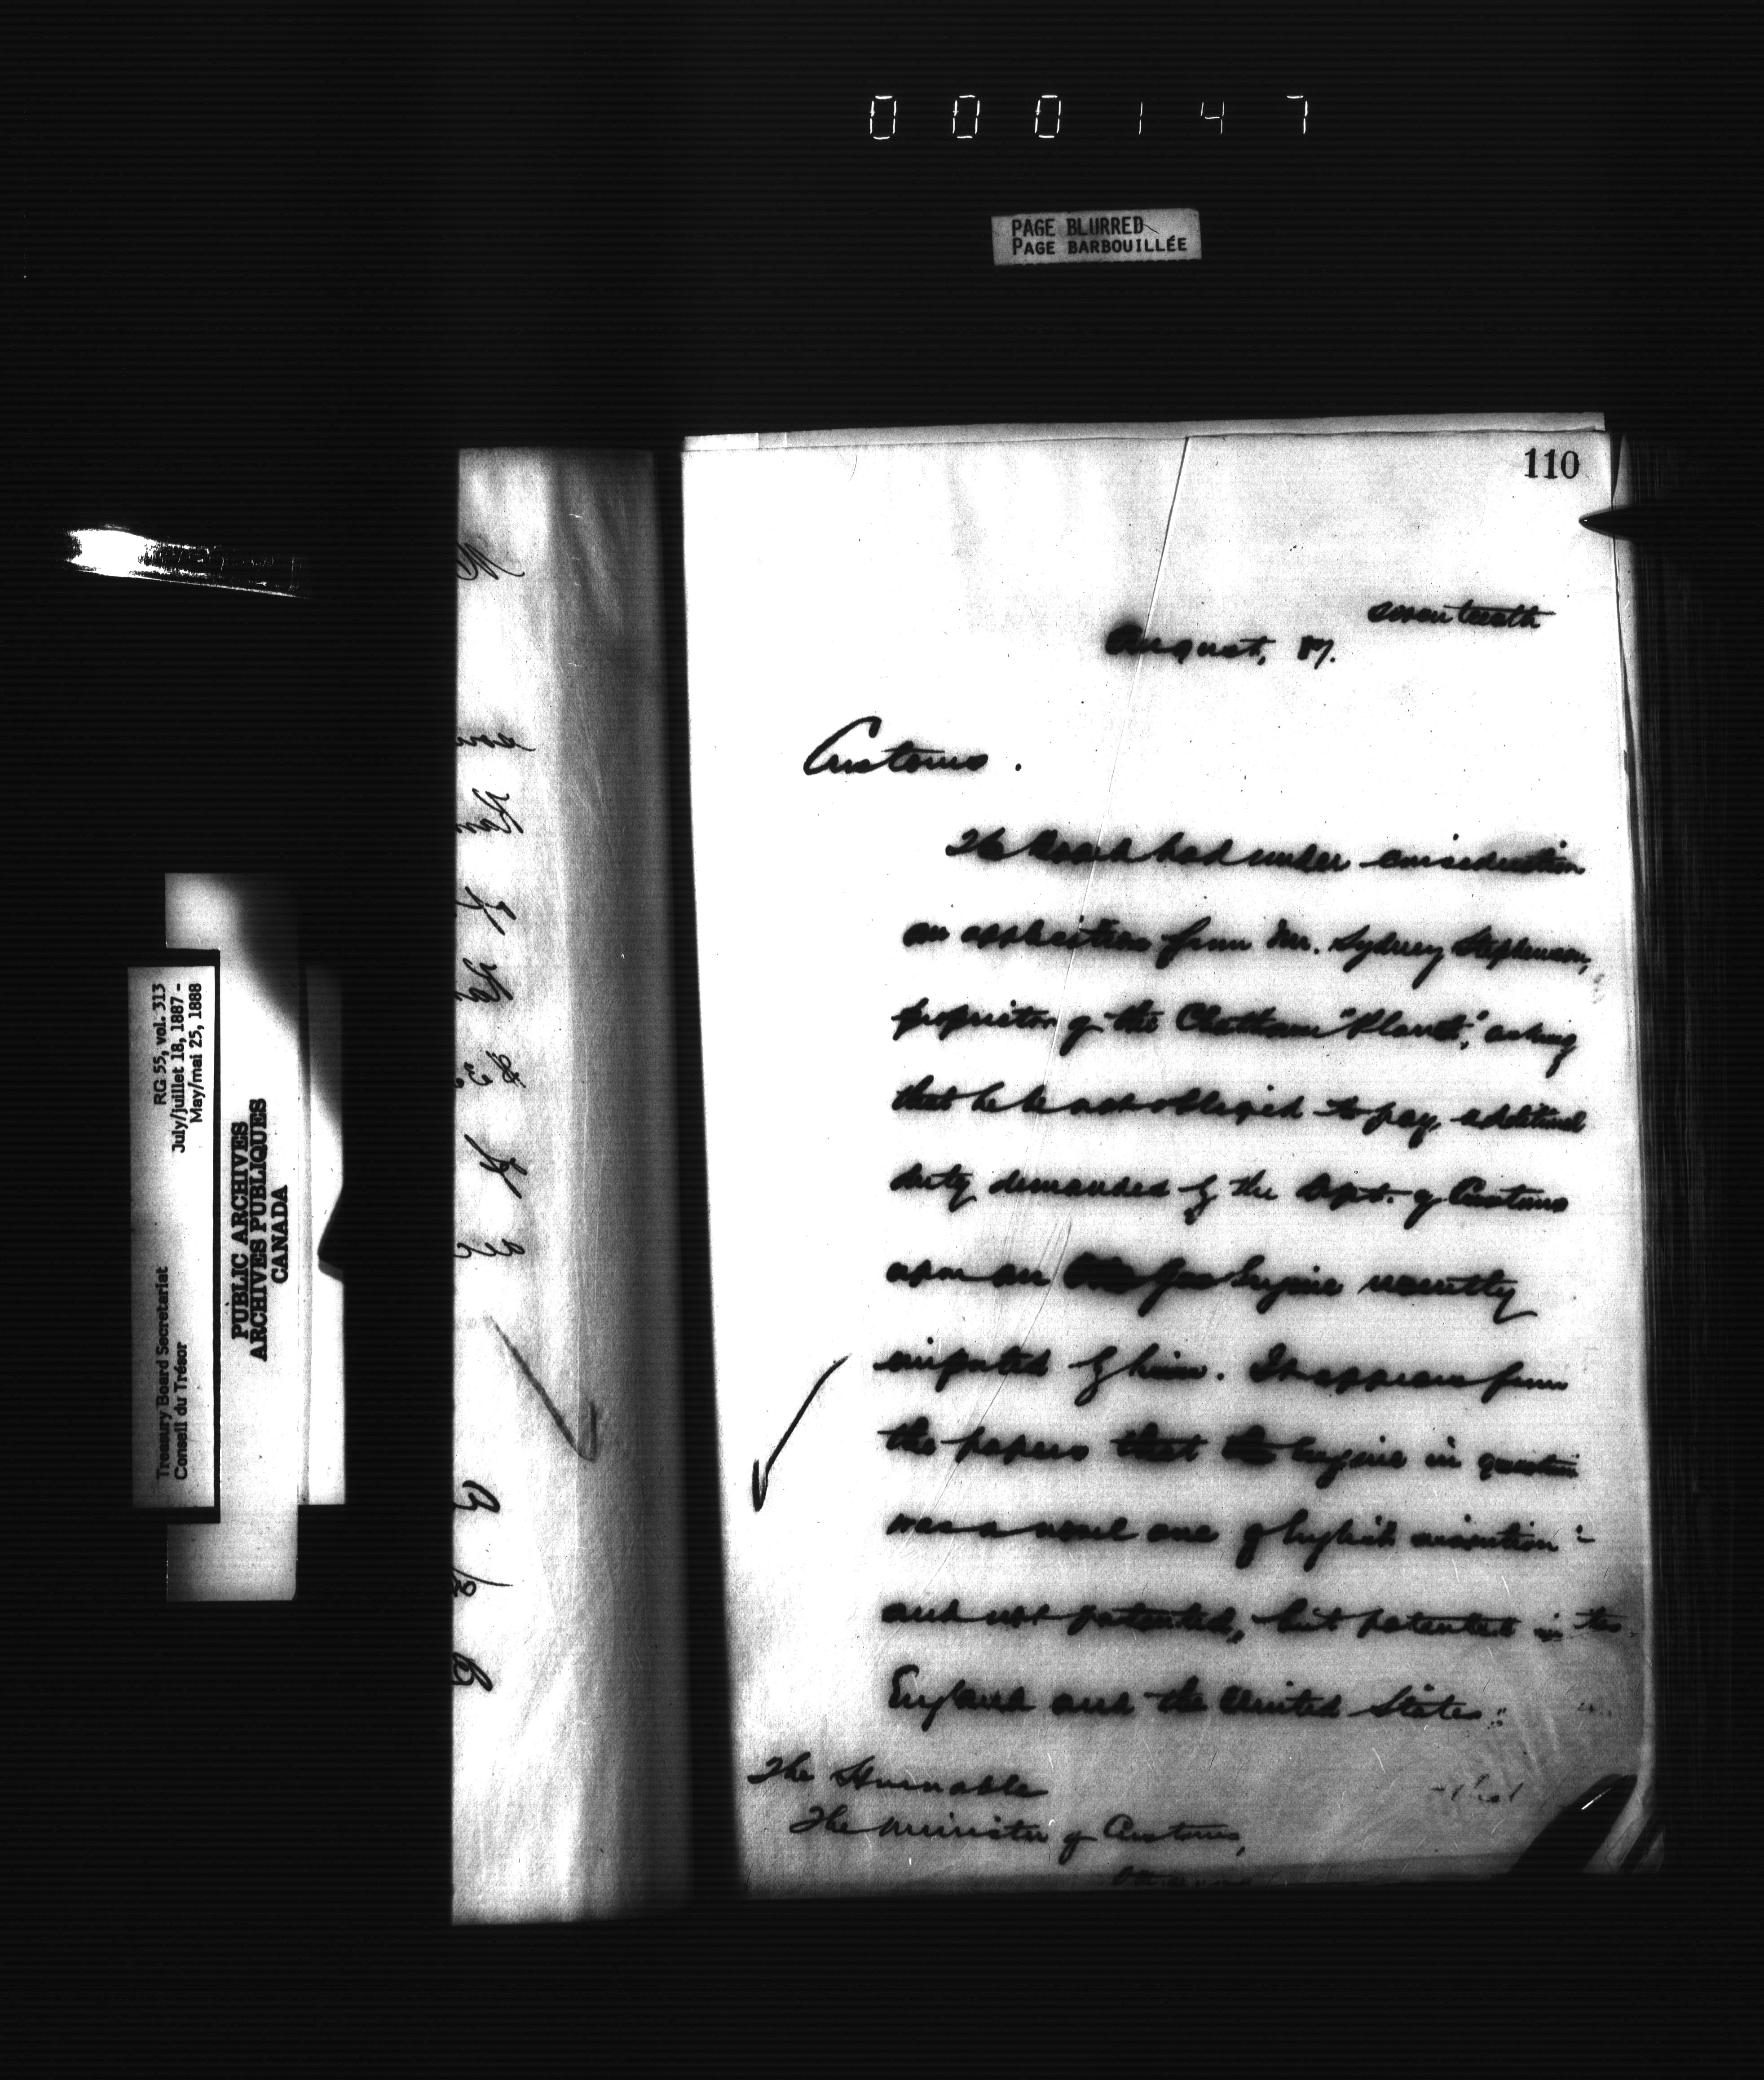 000147
PAGE BLURRED
PAGE BARBOUILLÉE
RG 55, vol. 313
July/juillet 18, 1887 -
May/mai 25, 1888
Treasury Board Secretariat
Conseil du Trésor
PUBLIC ARCHIVES
ARCHIVES PUBLIQUES
CANADA
110
seventeenth
August, 87.
Customs.
The Board had under consideration
an application from Mr. Sydney Stephenson,
proprietor of the Chatham "Planet," asking
that he be not obliged to pay additional
duty demanded by the Dept. of Customs
upon an Otto Gas Engine recently
imported by him. It appears from
the papers that the Engine in question
was a novel one of English invention
and not patented, but patented in
England and the United States:
The Honorable
The Minister of Customs,
Ottawa
- that